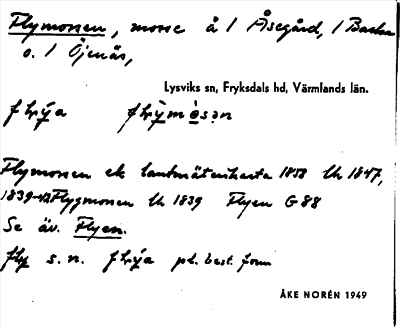 Flymossen, mosse å 1 Åsegård, 1 Backa
o. 1 Öjenäs,
Lysviks sn, Fryksdals hd, Värmlands län.
Flymossen ek lantmäterikarta 1858 Lk 1847,
1839-42 Flygmossen Lk 1839 Flyen G88
Se äv. Flyen.
fly s.n. pl. best. form
ÅKE NORÉN 1949